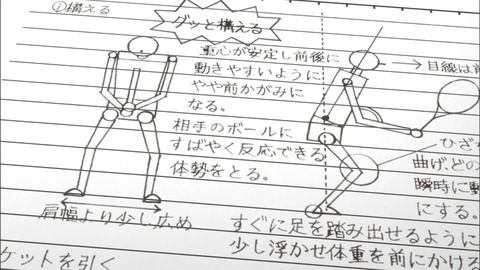 ①構える
グッと構える
重心が安定し前後に
動きやすいように
やや前かがみに
なる。
相手のボールに
すばやく反応できる
体勢をとる。
→目線は前
ひざを
曲げ、どの
瞬時に動
にする。
肩幅より少し広め
すぐに足を踏み出せるように
少し浮かせ体重を前にかける
ケットを引く